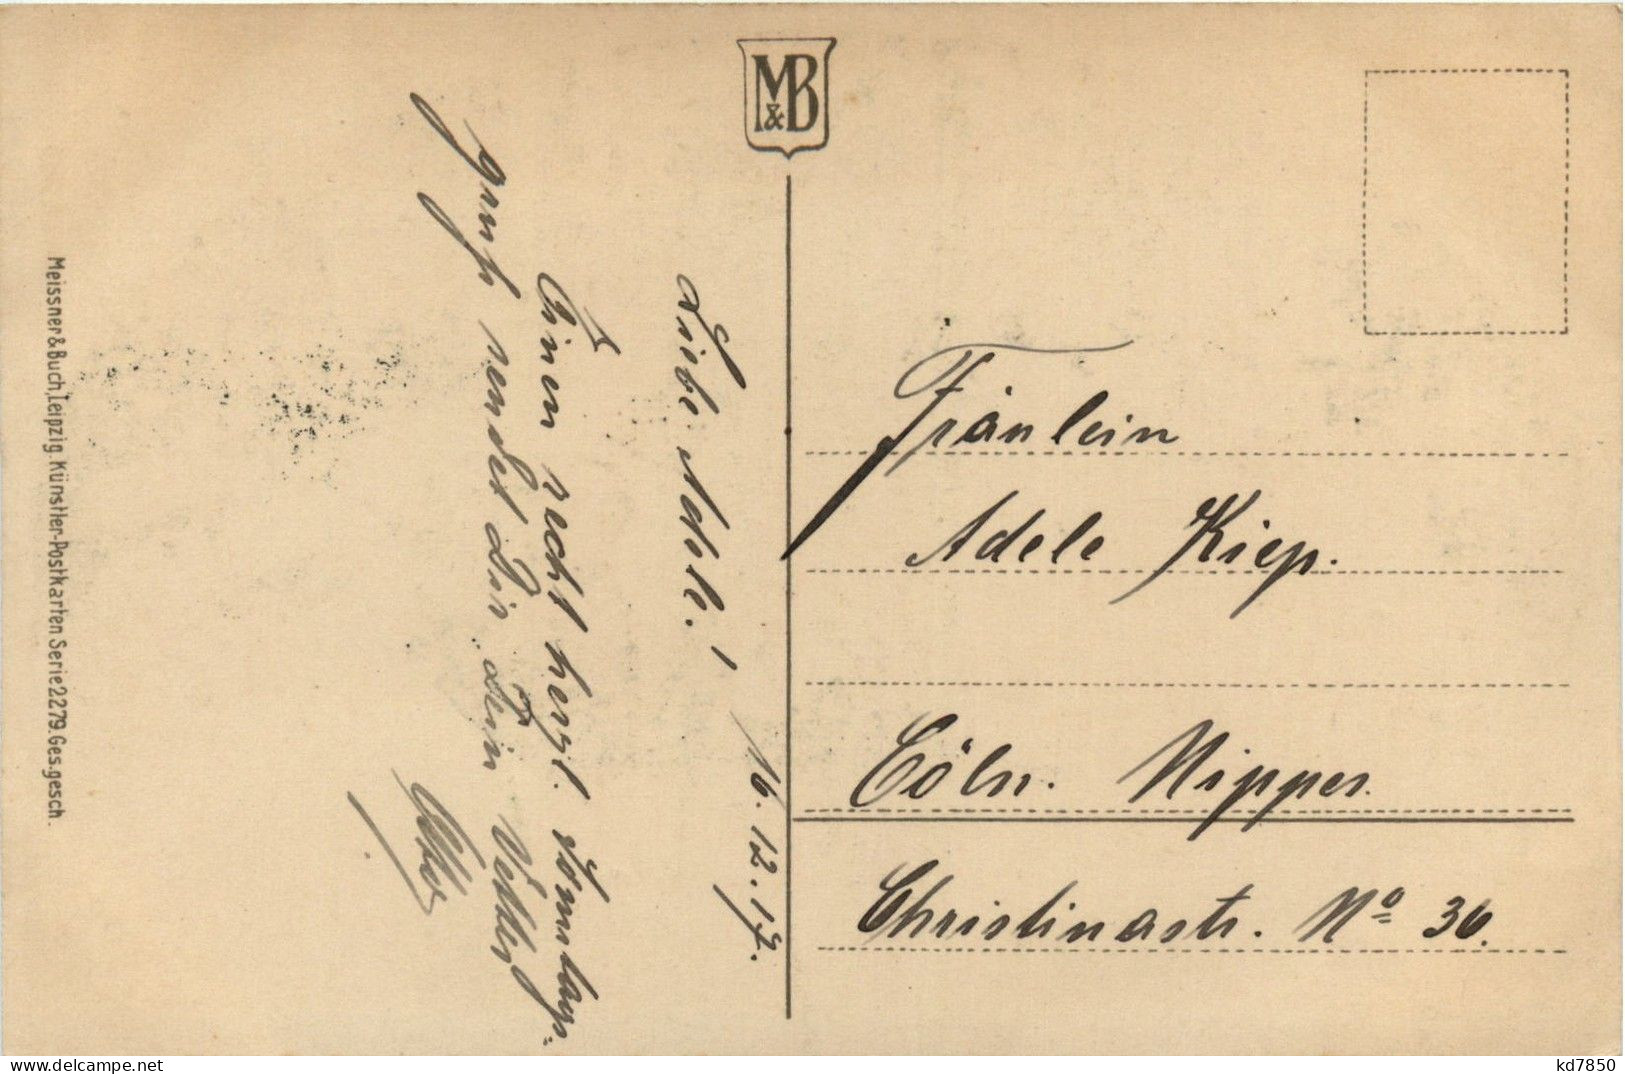 M&B
16.12.17.
Liebe Adele!
Einen recht herzl. Sonntags-
gruß sendet Dir, Dein Vetter
Otto
Fräulein
Adele Kiep.
Cöln. Nippes.
Christinastr. Nº 36.
Meissner & Buch, Leipzig. Künstler-Postkarten Serie 2279. Ges. gesch.
kd7850
delcampe.net